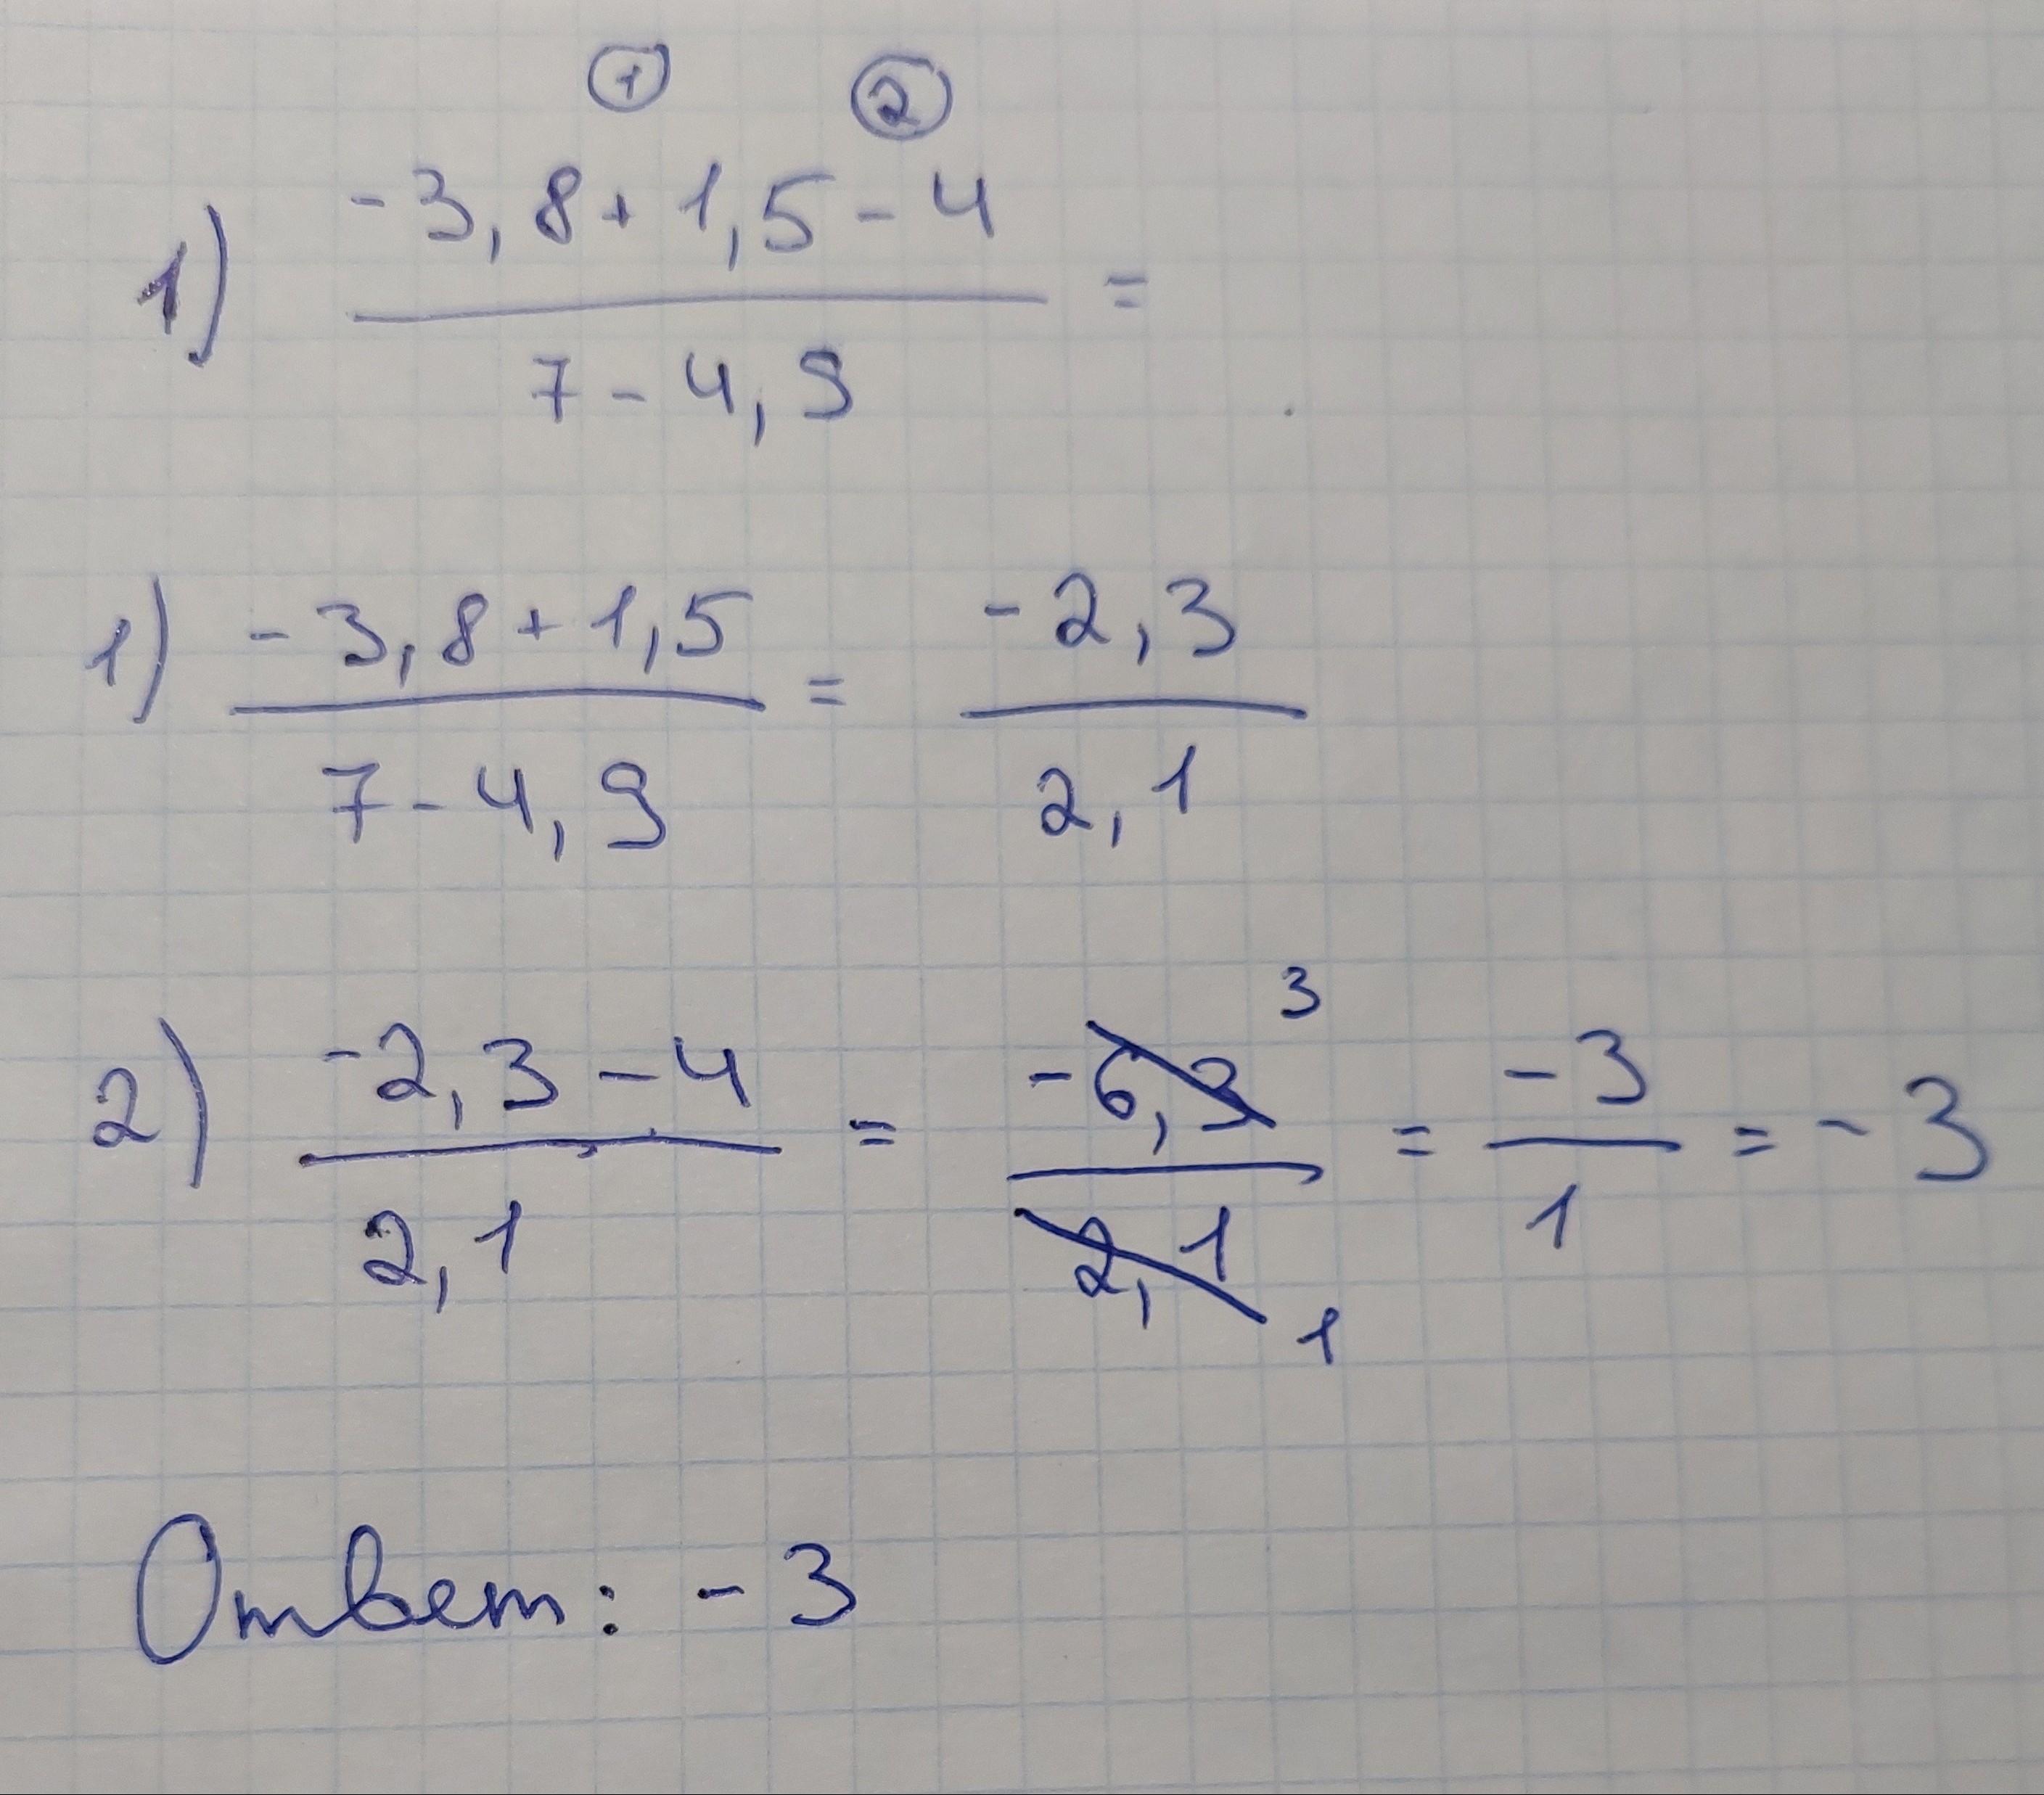 ① ②
1) -3,8 + 1,5 - 4
=
7 - 4,9
1) -3,8 + 1,5 = -2,3
7 - 4,9 2,1
3
2) -2,3 - 4 = -6,3 = -3 = -3
2,1 2,1 1
1
Ответ: -3